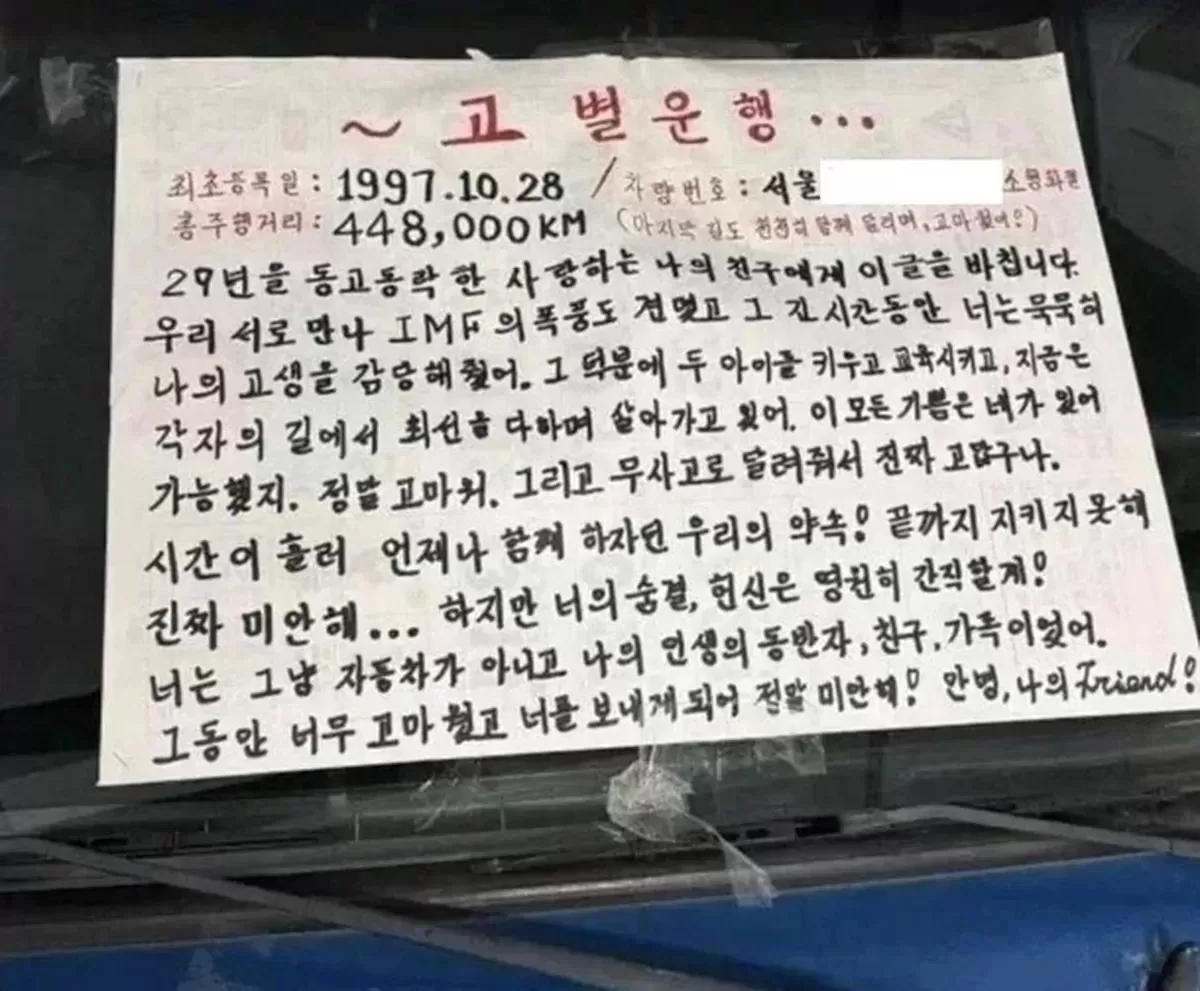 ~ 고별운행 ...
최초등록일 : 1997.10.28 / 차량번호 : 서울 소형화물
총주행거리 : 448,000KM (마지막 길도 천천히 함께 달리며, 고마웠어!)
29년을 동고동락한 사랑하는 나의 친구에게 이 글을 바칩니다.
우리 서로 만나 IMF의 폭풍도 견뎠고 그 긴 시간동안 너는 묵묵히
나의 고생을 감당해줬어. 그 덕분에 두 아이를 키우고 교육시키고, 지금은
각자의 길에서 최선을 다하며 살아가고 있어. 이 모든 기쁨은 네가 있어
가능했지. 정말 고마워. 그리고 무사고로 달려줘서 진짜 고맙구나.
시간이 흘러 언제나 함께 하자던 우리의 약속! 끝까지 지키지 못해
진짜 미안해... 하지만 너의 숨결, 헌신은 영원히 간직할게!
너는 그냥 자동차가 아니고 나의 인생의 동반자, 친구, 가족이었어.
그동안 너무 고마웠고 너를 보내게 되어 정말 미안해! 안녕, 나의 Friend!